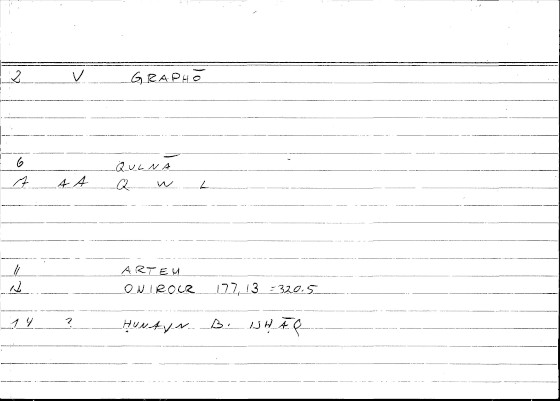 2 V GRAPHŌ
6 QULNĀ
A AA Q W L
11 ARTEM
12 ONIROCR 177,13 =320.5
14 ? ḤUNAYN B. ISḤĀQ